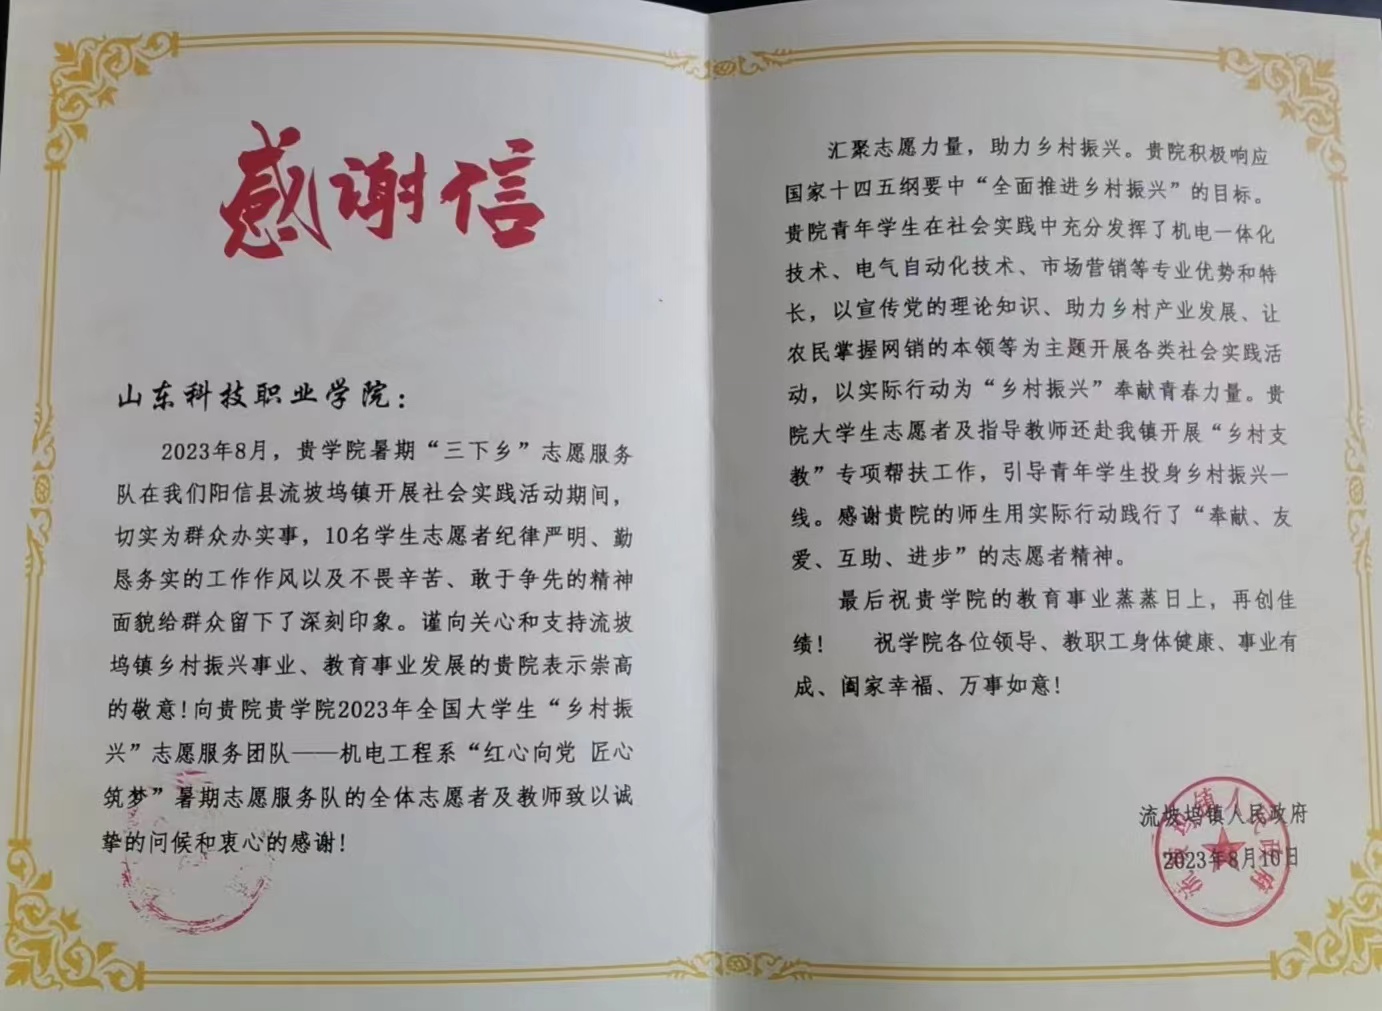 感谢信
山东科技职业学院：
2023年8月，贵学院暑期“三下乡”志愿服务
队在我们阳信县流坡坞镇开展社会实践活动期间，
切实为群众办实事，10名学生志愿者纪律严明、勤
恳务实的工作作风以及不畏辛苦、敢于争先的精神
面貌给群众留下了深刻印象。谨向关心和支持流坡
坞镇乡村振兴事业、教育事业发展的贵院表示崇高
的敬意!向贵院贵学院2023年全国大学生“乡村振
兴”志愿服务团队——机电工程系“红心向党 匠心
筑梦”暑期志愿服务队的全体志愿者及教师致以诚
挚的问候和衷心的感谢!
汇聚志愿力量，助力乡村振兴。贵院积极响应
国家十四五纲要中“全面推进乡村振兴”的目标。
贵院青年学生在社会实践中充分发挥了机电一体化
技术、电气自动化技术、市场营销等专业优势和特
长，以宣传党的理论知识、助力乡村产业发展、让
农民掌握网销的本领等为主题开展各类社会实践活
动，以实际行动为“乡村振兴”奉献青春力量。贵
院大学生志愿者及指导教师还赴我镇开展“乡村支
教”专项帮扶工作，引导青年学生投身乡村振兴一
线。感谢贵院的师生用实际行动践行了“奉献、友
爱、互助、进步”的志愿者精神。
最后祝贵学院的教育事业蒸蒸日上，再创佳
绩! 祝学院各位领导、教职工身体健康、事业有
成、阖家幸福、万事如意!
流坡坞镇人民政府
2023年8月10日
流坡坞镇人民政府